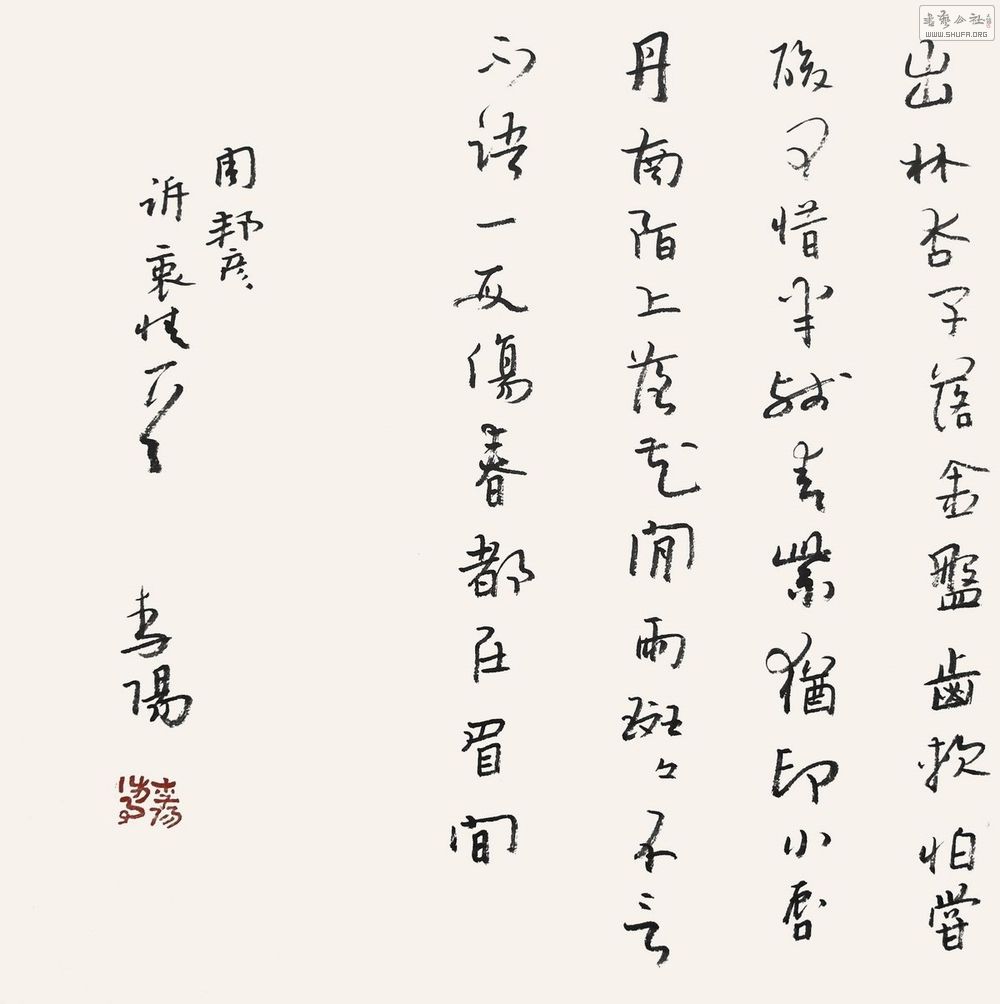 書藝公社
WWW.SHUFA.ORG
出林杏子落金盤齒軟怕嘗
酸可惜半殘青紫猶印小唇
丹南陌上落花閒雨斑々不言
不語一段傷春都在眉間
周邦彦
訴衷情一首
陽